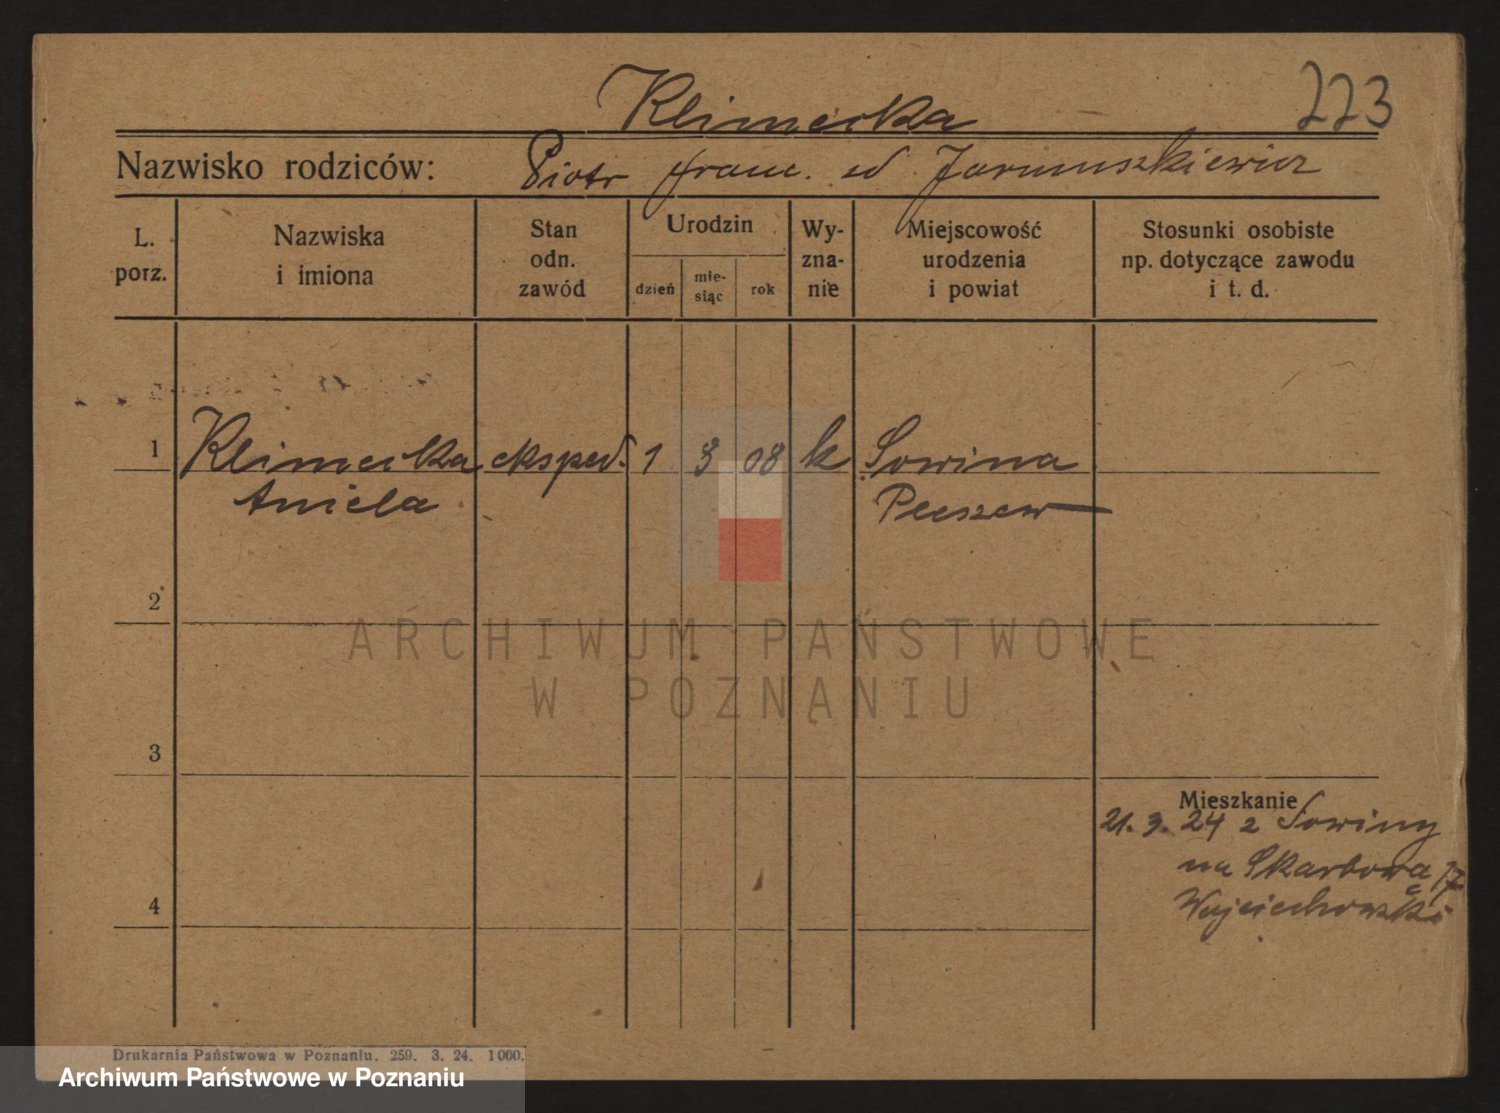 Klimecka
223
Nazwisko rodziców: Piotr franc. ed Jarmuszkiewicz
L. porz.
Nazwiska i imiona
Stan odn. zawód
Urodzin
dzień
mie-siąc
rok
Wy-zna-nie
Miejscowość urodzenia i powiat
Stosunki osobiste np. dotyczące zawodu i t. d.
1 Klimecka eksped. 1 3 08 k Sowina
Aniela Pleszew
2
3
4
Mieszkanie
21. 3. 24 z Sowiny
na Skarbową 17
Wojciechowski
ARCHIWUM PAŃSTWOWE
W POZNANIU
Drukarnia Państwowa w Poznaniu. 259. 3. 24. 1000.
Archiwum Państwowe w Poznaniu